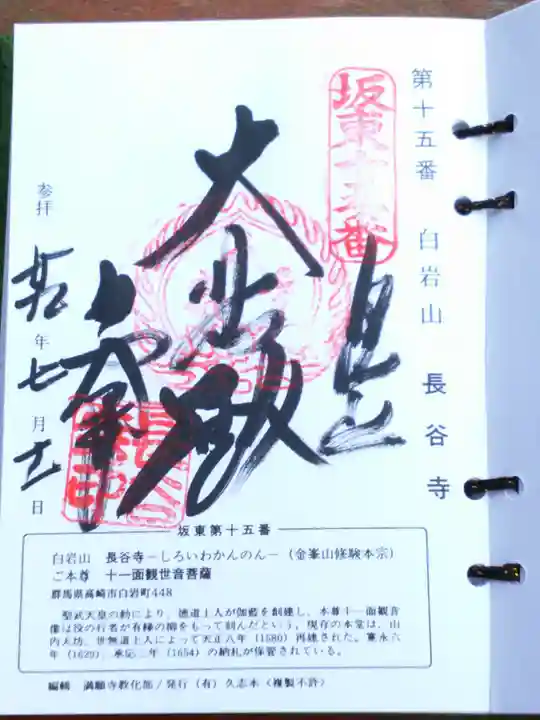 第十五番 白岩山 長谷寺
坂東十五番
大悲殿
参拝
年七月
日
坂東第十五番
白岩山 長谷寺－しろいわかんのん－（金峯山修験本宗）
ご本尊 十一面観世音菩薩
群馬県高崎市白岩町448
聖武天皇の勅により、徳道上人が伽藍を創建し、本尊十一面観音
像は役の行者が有縁の柳をもって刻んだという。現存の本堂は、山
内大坊、世無道上人によって天正八年（1580）再建された。寛永六
年（1629）、承応三年（1654）の納札が保管されている。
編輯 満願寺教化部／発行（有）久志本（複製不許）